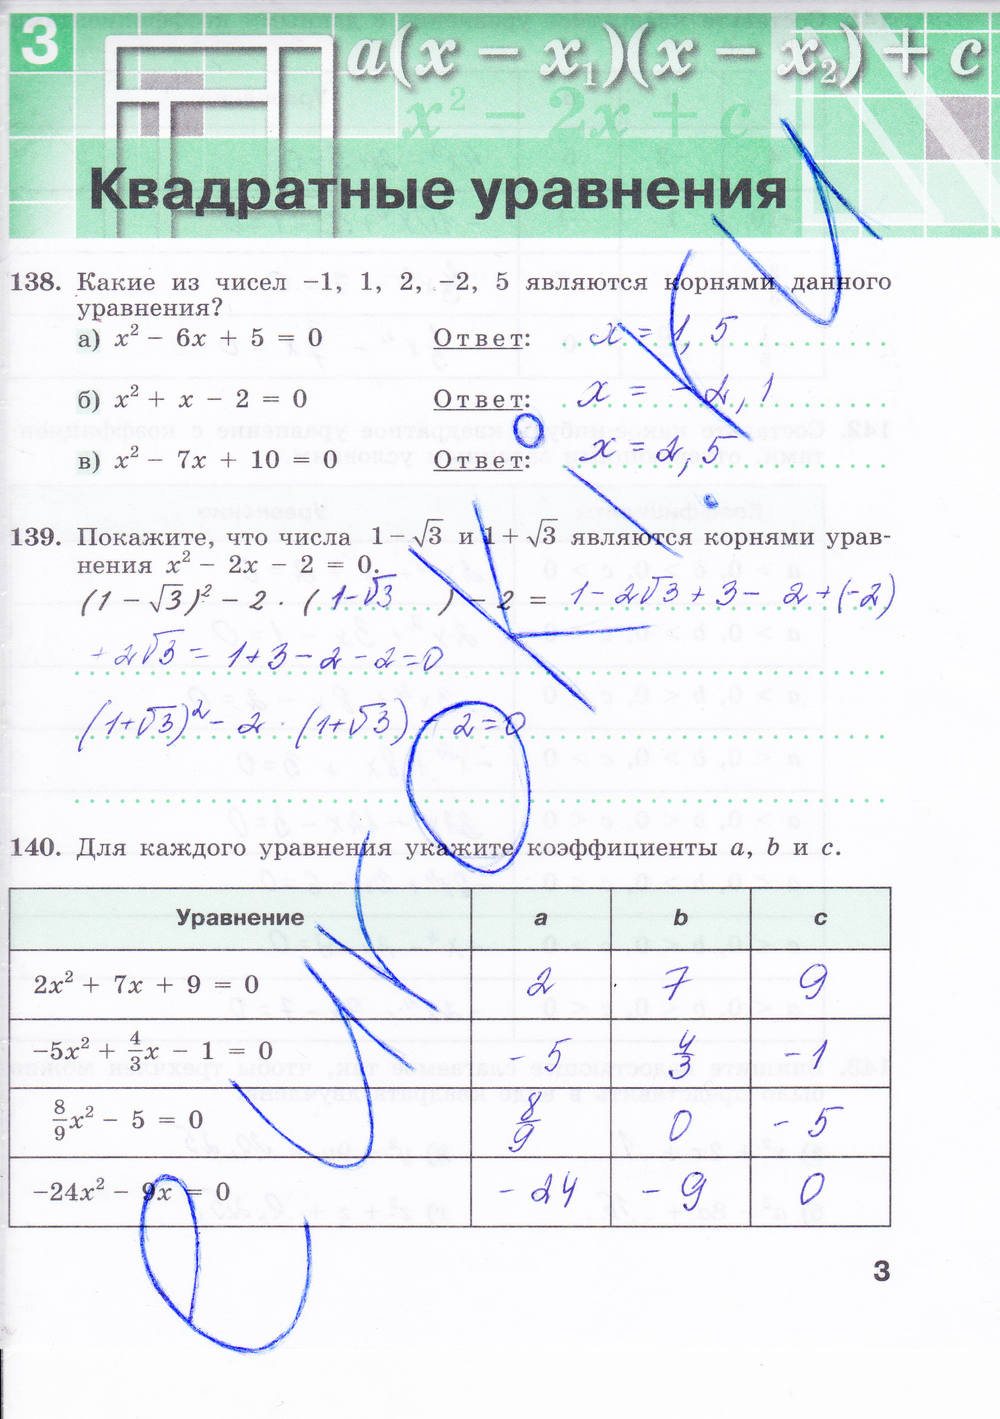 3
a(x − x₁)(x − x₂) + c
x² − 2x + c
Квадратные уравнения
138. Какие из чисел −1, 1, 2, −2, 5 являются корнями данного
уравнения?
а) x² − 6x + 5 = 0 Ответ: x = 1, 5
б) x² + x − 2 = 0 Ответ: x = −2, 1
в) x² − 7x + 10 = 0 Ответ: x = 2, 5
139. Покажите, что числа 1 − √3 и 1 + √3 являются корнями урав-
нения x² − 2x − 2 = 0.
(1 − √3)² − 2 · (1-√3) − 2 = 1 - 2√3 + 3 - 2 + (-2)
+ 2√3 = 1+3-2-2=0
(1+√3)² - 2 · (1+√3) - 2 = 0
140. Для каждого уравнения укажите коэффициенты a, b и c.
Уравнение a b c
2x² + 7x + 9 = 0 2 7 9
−5x² + 4/3x − 1 = 0 -5 4/3 -1
8/9x² − 5 = 0 8/9 0 -5
−24x² − 9x = 0 -24 -9 0
3